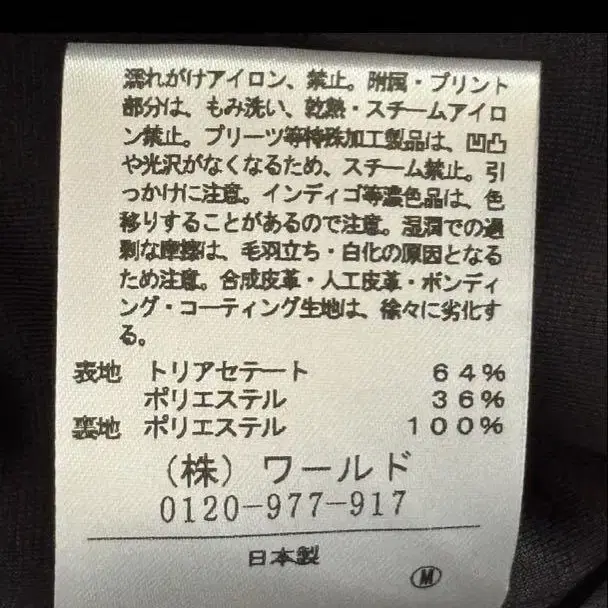 濡れがけアイロン、禁止。附属・プリント
部分は、もみ洗い、乾熱・スチームアイロ
ン禁止。プリーツ等特殊加工製品は、凹凸
や光沢がなくなるため、スチーム禁止。引
っかけに注意。インディゴ等濃色品は、色
移りすることがあるので注意。湿潤での過
剰な摩擦は、毛羽立ち・白化の原因となる
ため注意。合成皮革・人工皮革・ボンディ
ング・コーティング生地は、徐々に劣化す
る。
表地 トリアセテート 64%
ポリエステル 36%
裏地 ポリエステル 100%
(株) ワールド
0120-977-917
日本製
M